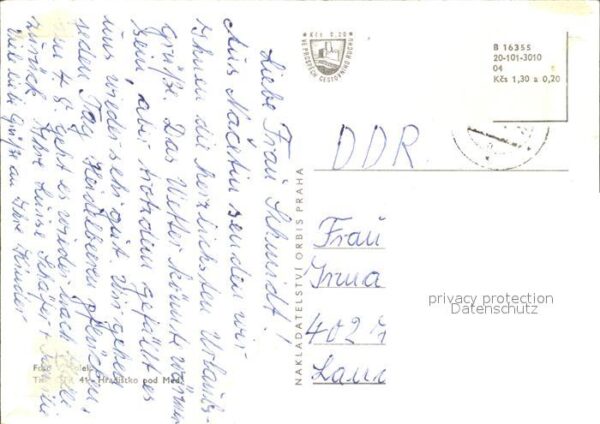 Liebe Frau Schmidt!
Aus Načetín senden wir
Ihnen die herzlichsten Urlaubs-
grüße. Das Wetter könnte wärmer
sein, aber trotzdem gefällt es
uns wieder sehr gut. Wir gehen
jeden Tag Heidelbeeren pflücken,
am 4.8. geht es wieder nach
zurück. Ihre Luise Schäfer +
Viele liebe Grüße an Ihre Kinder
Kčs 0,20
VE PROSPĚCH CESTOVNÍHO RUCHU
B 16355
20-101-3010
04
Kčs 1,30 a 0,20
DDR
NAKLADATELSTVÍ ORBIS PRAHA
Frau
Irma
402
privacy protection
Datenschutz
Hradištko pod Med